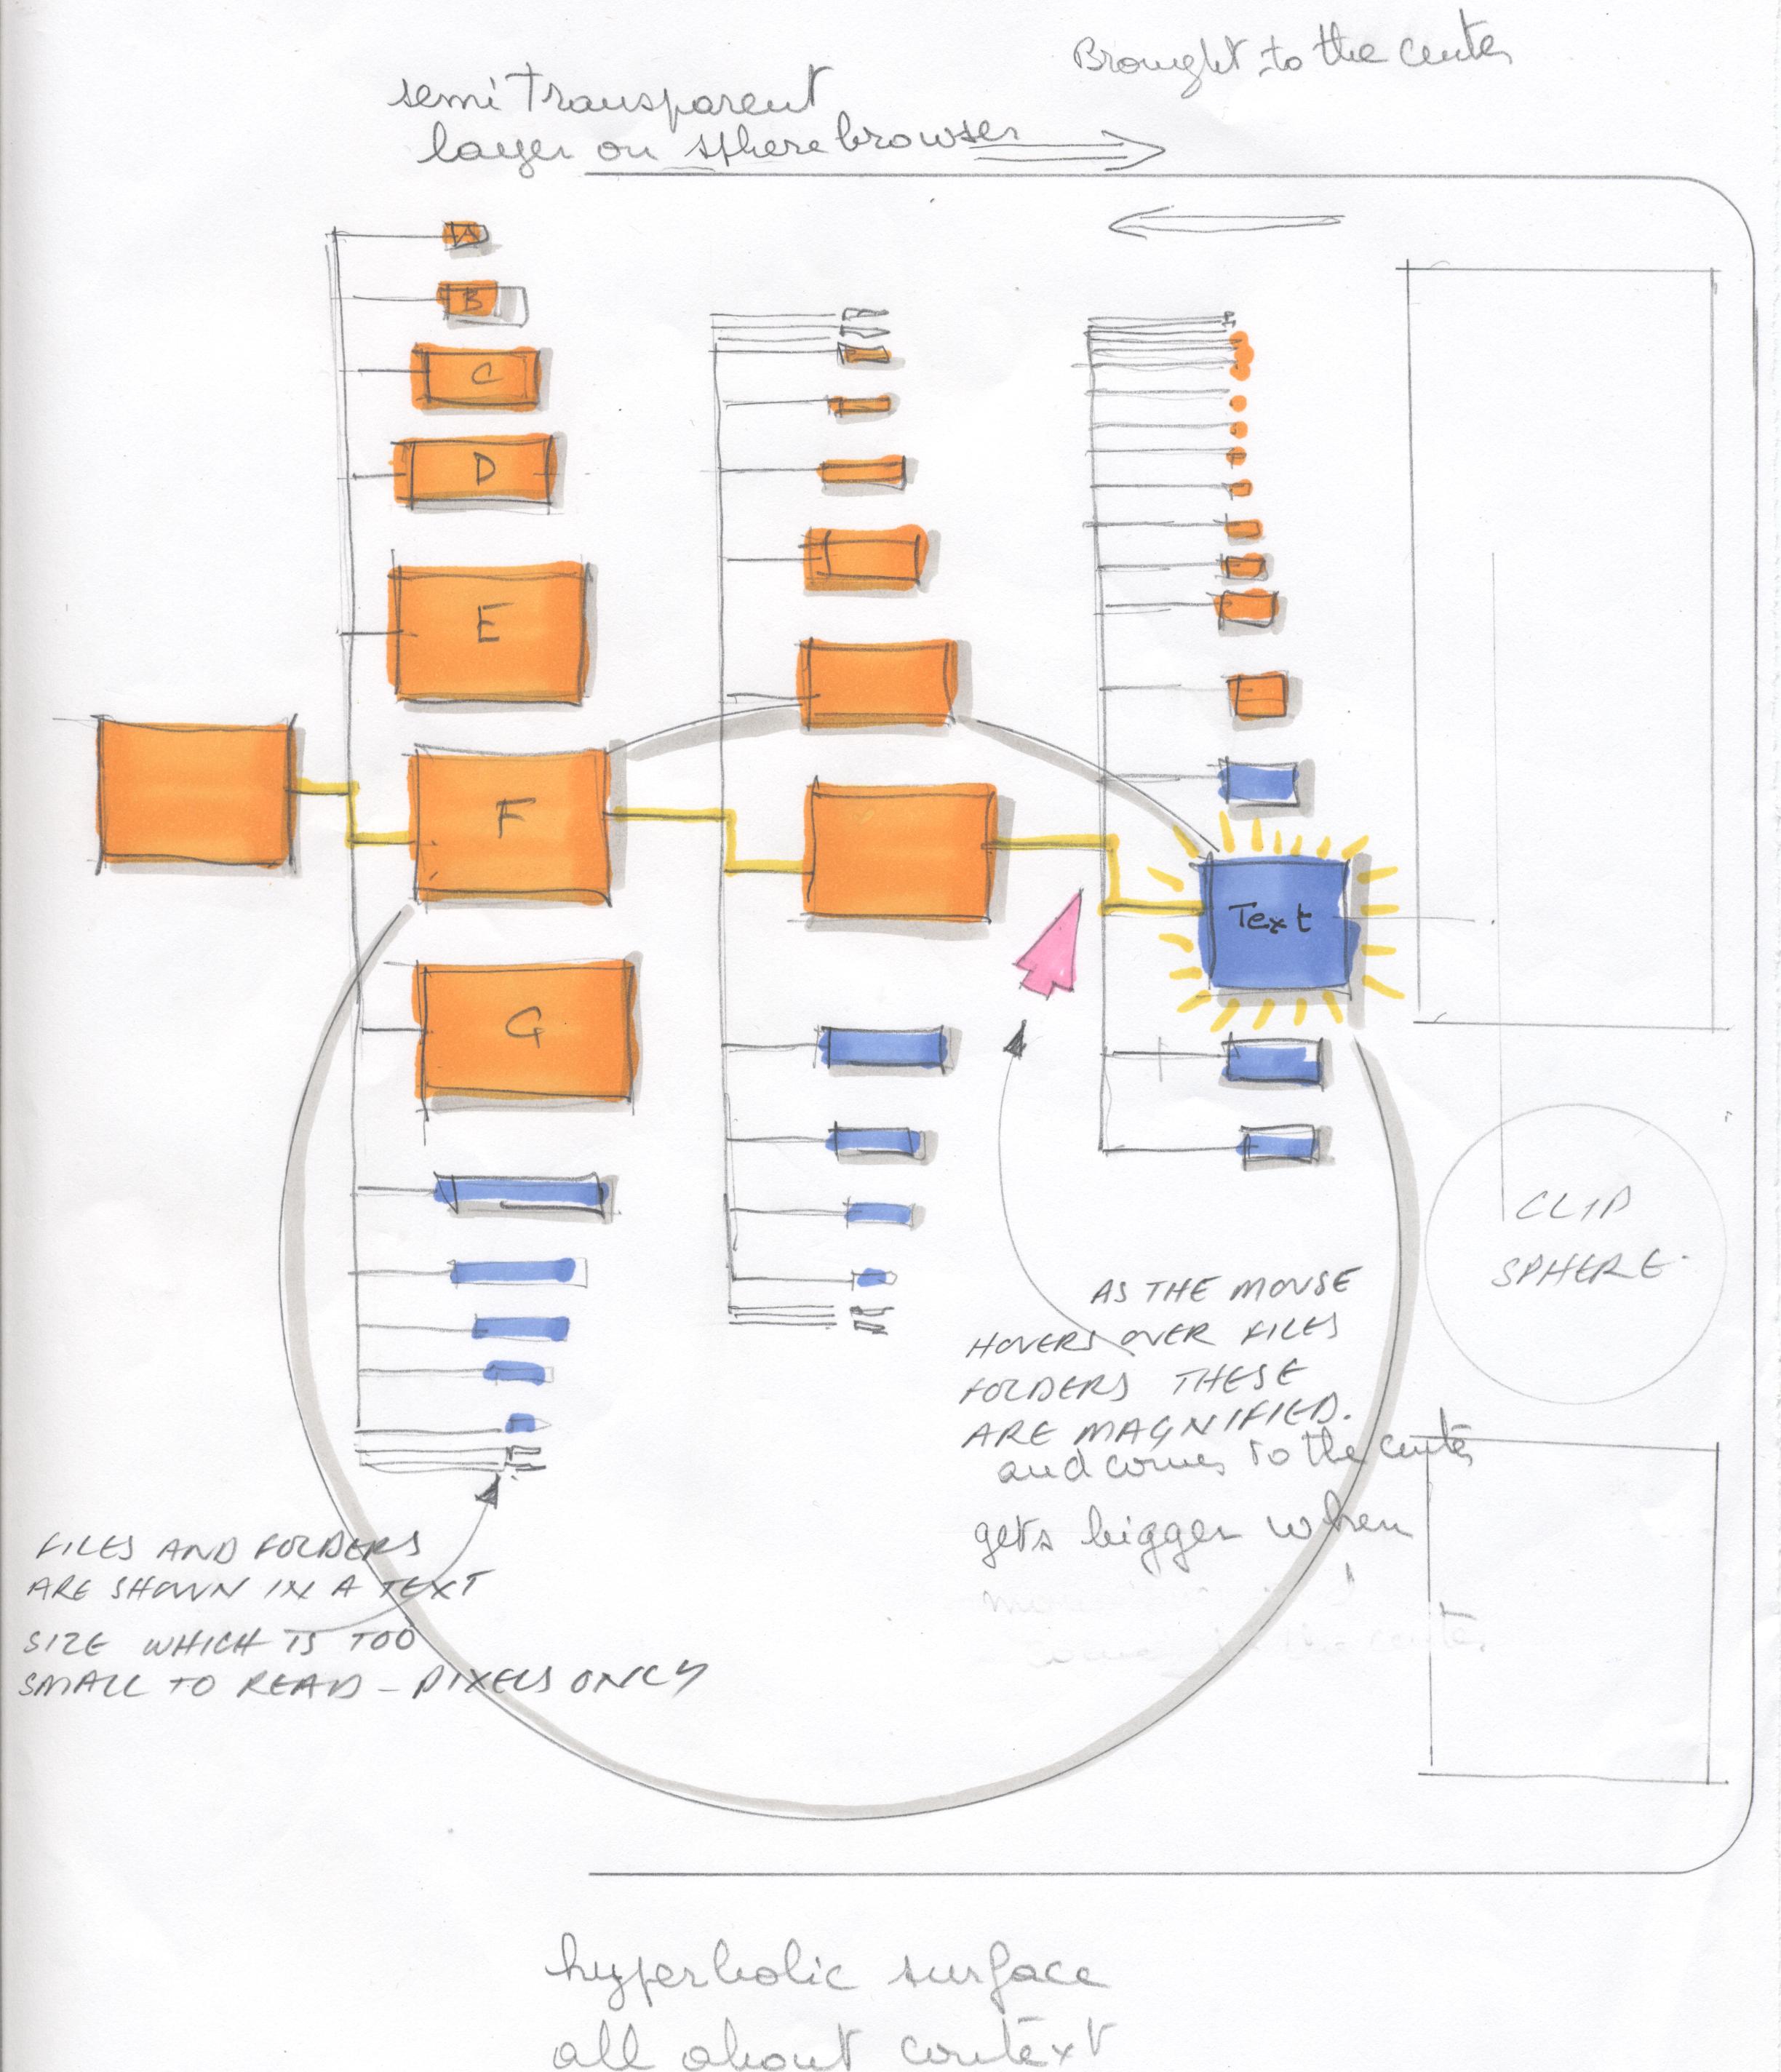 Brought to the center
semi transparent
layer on sphere browser
A
B
C
D
E
F
G
Text
CLIP
SPHERE.
AS THE MOUSE
HOVERS OVER FILES
FOLDERS THESE
ARE MAGNIFIED.
and comes to the center
gets bigger when
FILES AND FOLDERS
ARE SHOWN IN A TEXT
SIZE WHICH IS TOO
SMALL TO READ - PIXELS ONLY
hyperbolic surface
all about context